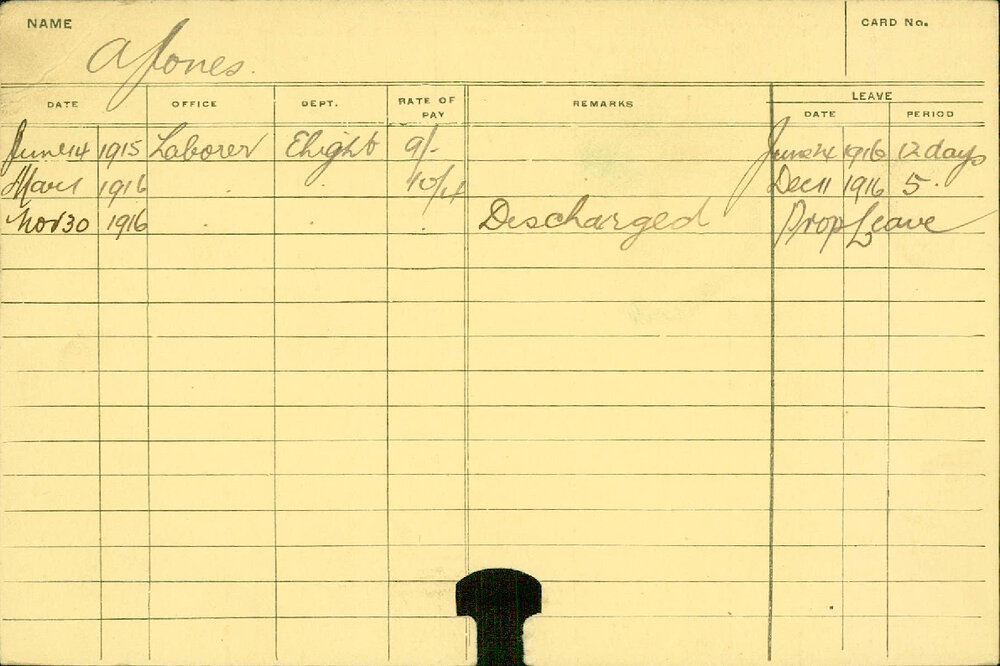 NAME
CARD No.
A Jones.
DATE OFFICE DEPT. RATE OF PAY REMARKS LEAVE
DATE PERIOD
June 14 1915 Laborer Elight 9/- June 24 1916 12 days
Mar 1 1916 " " 10/4 Dec 11 1916 5 "
Nov 30 1916 " " " Discharged Prop Leave